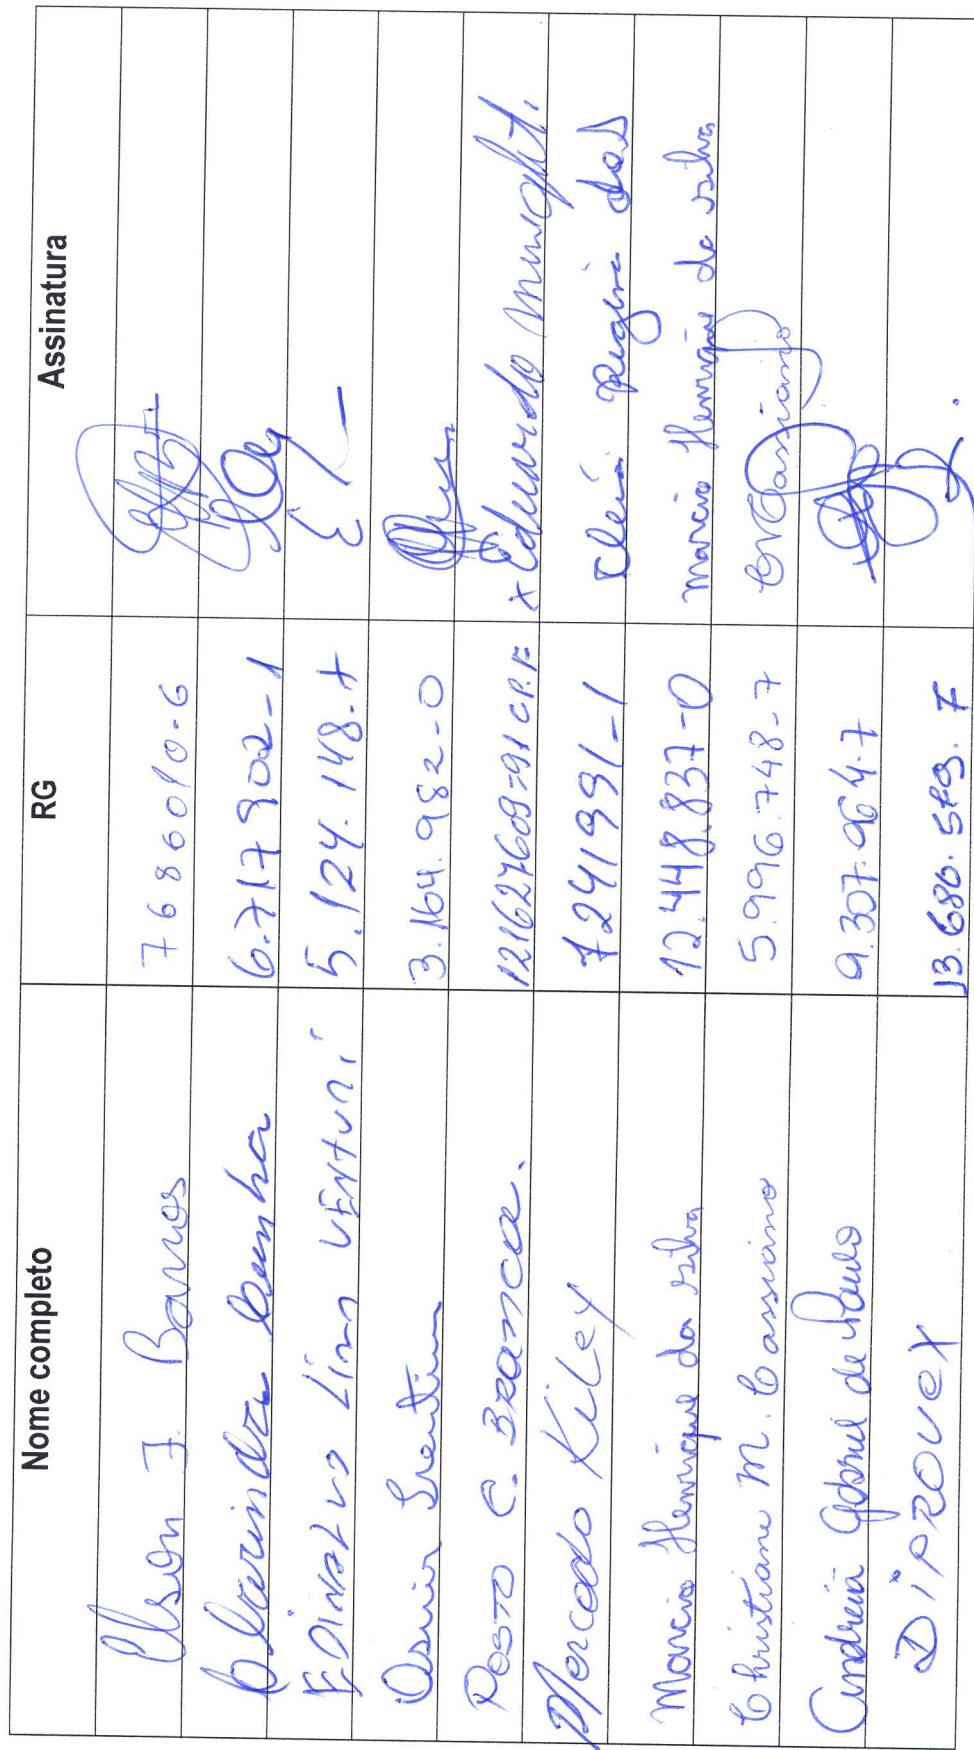 Nome completo RG Assinatura
Elson J. Barros 7686010-6
Clarinda Cunha 6.717902-1
EDINALVO Lima VENTURI 5.124.148-7
Osmir 3.164.982-0
POSTO C. BRANCA. 12162760991 CP.F x Eduardo
Mercado Kiley 7241991-1 Cleia Regina dos
Marcio Henrique da silva 12.448.837-0 Marcio Henrique da silva
Christiane M. Cassiano 5.996.748-7 Cassiano
Andreia Gabriel de Paulo 9.307.964-7
DIPROVEX 13.680.579.7